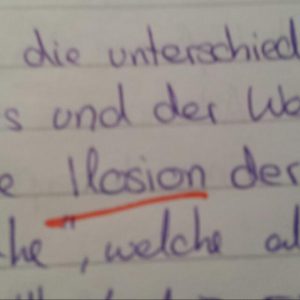 die unterschied
s und der Wa
e Ilosion der
che", welche al